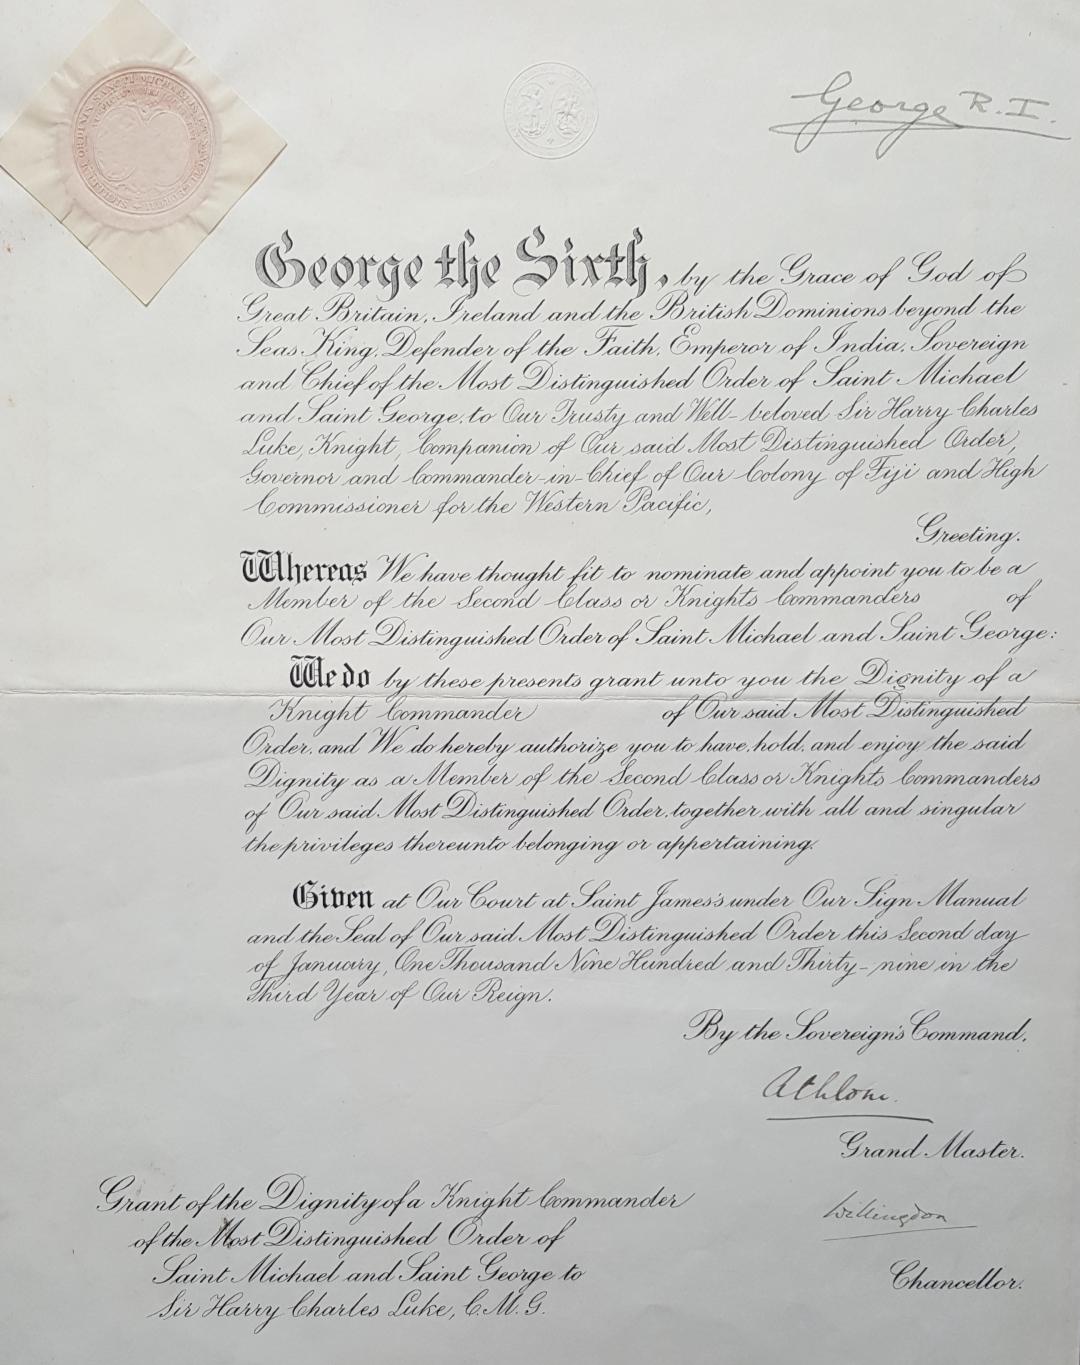 George R.I.
George the Sixth, by the Grace of God of
Great Britain, Ireland and the British Dominions beyond the
Seas King, Defender of the Faith, Emperor of India, Sovereign
and Chief of the Most Distinguished Order of Saint Michael
and Saint George, to Our Trusty and Well-beloved Sir Harry Charles
Luke, Knight, Companion of Our said Most Distinguished Order,
Governor and Commander-in-Chief of Our Colony of Fiji and High
Commissioner for the Western Pacific,
Greeting.
Whereas We have thought fit to nominate and appoint you to be a
Member of the Second Class or Knights Commanders of
Our Most Distinguished Order of Saint Michael and Saint George:
We do by these presents grant unto you the Dignity of a
Knight Commander of Our said Most Distinguished
Order, and We do hereby authorize you to have, hold, and enjoy the said
Dignity as a Member of the Second Class or Knights Commanders
of Our said Most Distinguished Order, together with all and singular
the privileges thereunto belonging or appertaining.
Given at Our Court at Saint James's under Our Sign Manual
and the Seal of Our said Most Distinguished Order this Second day
of January, One Thousand Nine Hundred and Thirty-nine in the
Third Year of Our Reign.
By the Sovereign's Command,
Athlone.
Grand Master.
Willingdon
Chancellor.
Grant of the Dignity of a Knight Commander
of the Most Distinguished Order of
Saint Michael and Saint George to
Sir Harry Charles Luke, C.M.G.